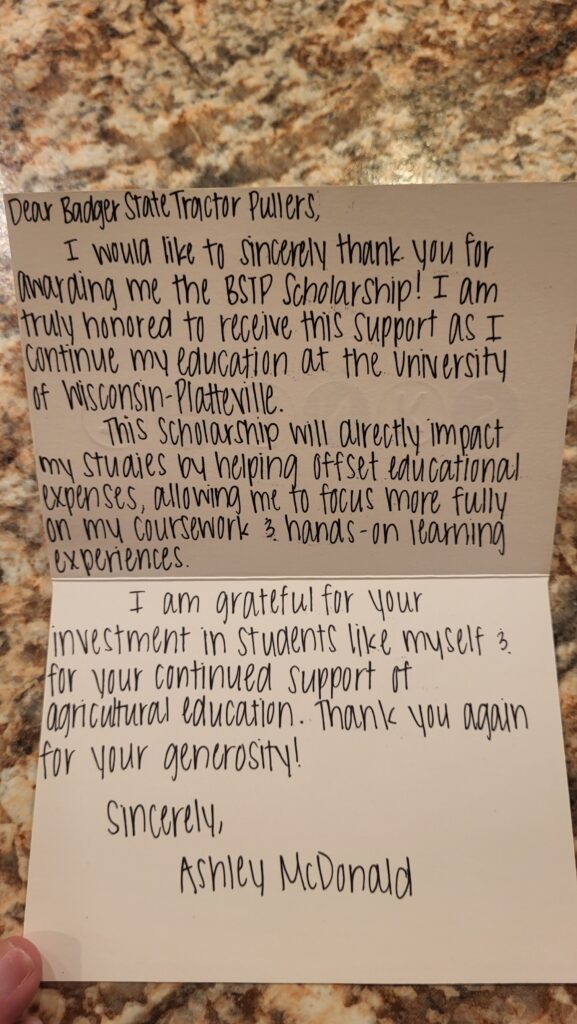 Dear Badger State Tractor Pullers,
I would like to sincerely thank you for
awarding me the BSTP Scholarship! I am
truly honored to receive this support as I
continue my education at the University
of Wisconsin-Platteville.
This scholarship will directly impact
my studies by helping offset educational
expenses, allowing me to focus more fully
on my coursework & hands-on learning
experiences.
I am grateful for your
investment in students like myself &
for your continued support of
agricultural education. Thank you again
for your generosity!
Sincerely,
Ashley McDonald